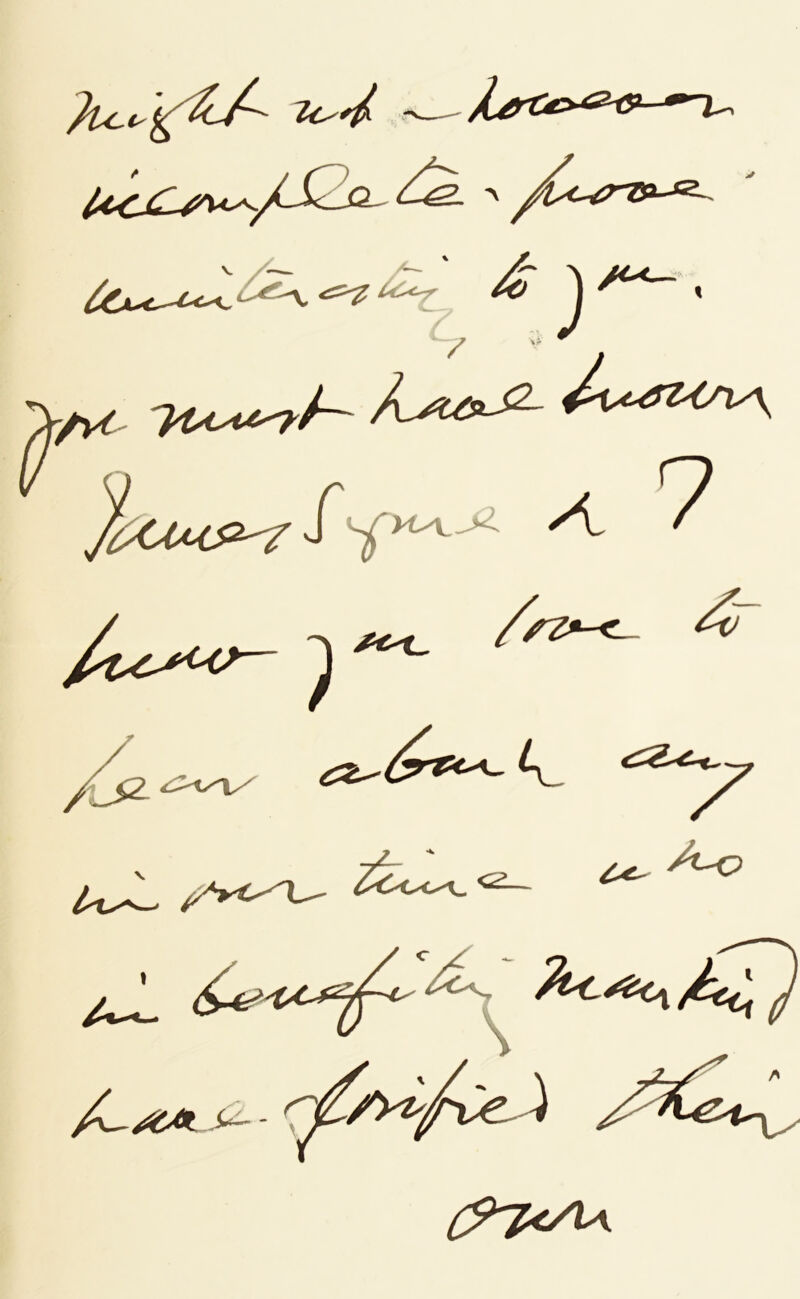 might not — however
incomplete - prove
uninteresting to you.
you must have known
James Syme & I
know you love to
hear about any
in our time who
in benefiting mankind
have glorified their
own